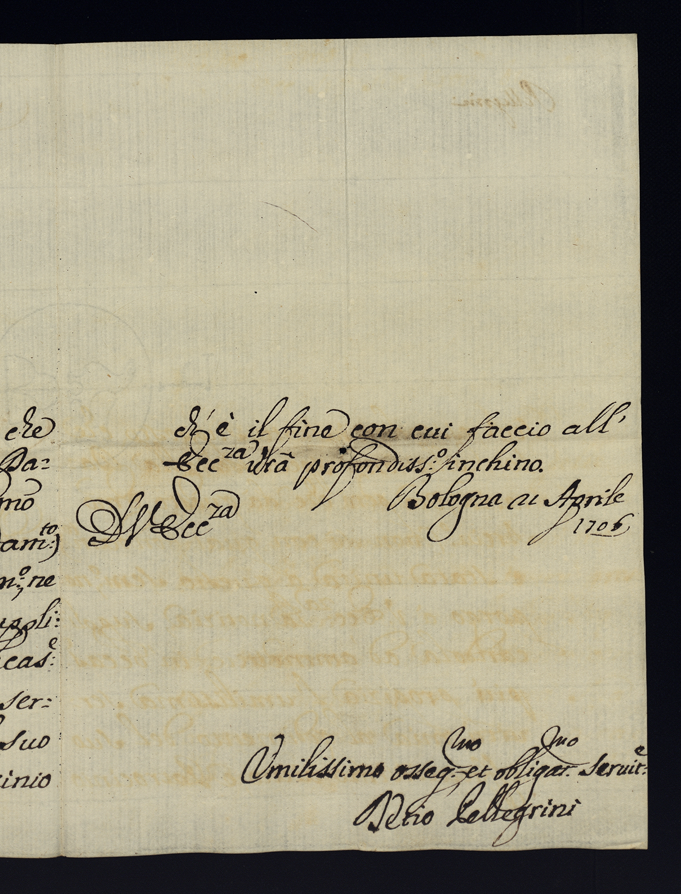 che
Da=
mõ
am:to)
m:o, ne
poli:
cas:e
ser=
suo
inio
ch' è il fine con cui faccio all'
Ecc.za vrã profondiss:o inchino.
Bologna 21 Aprile
1706
D V Ecc.za
Umilissimo osseq:mo et obligat:mo Servit:e
Pellegrini